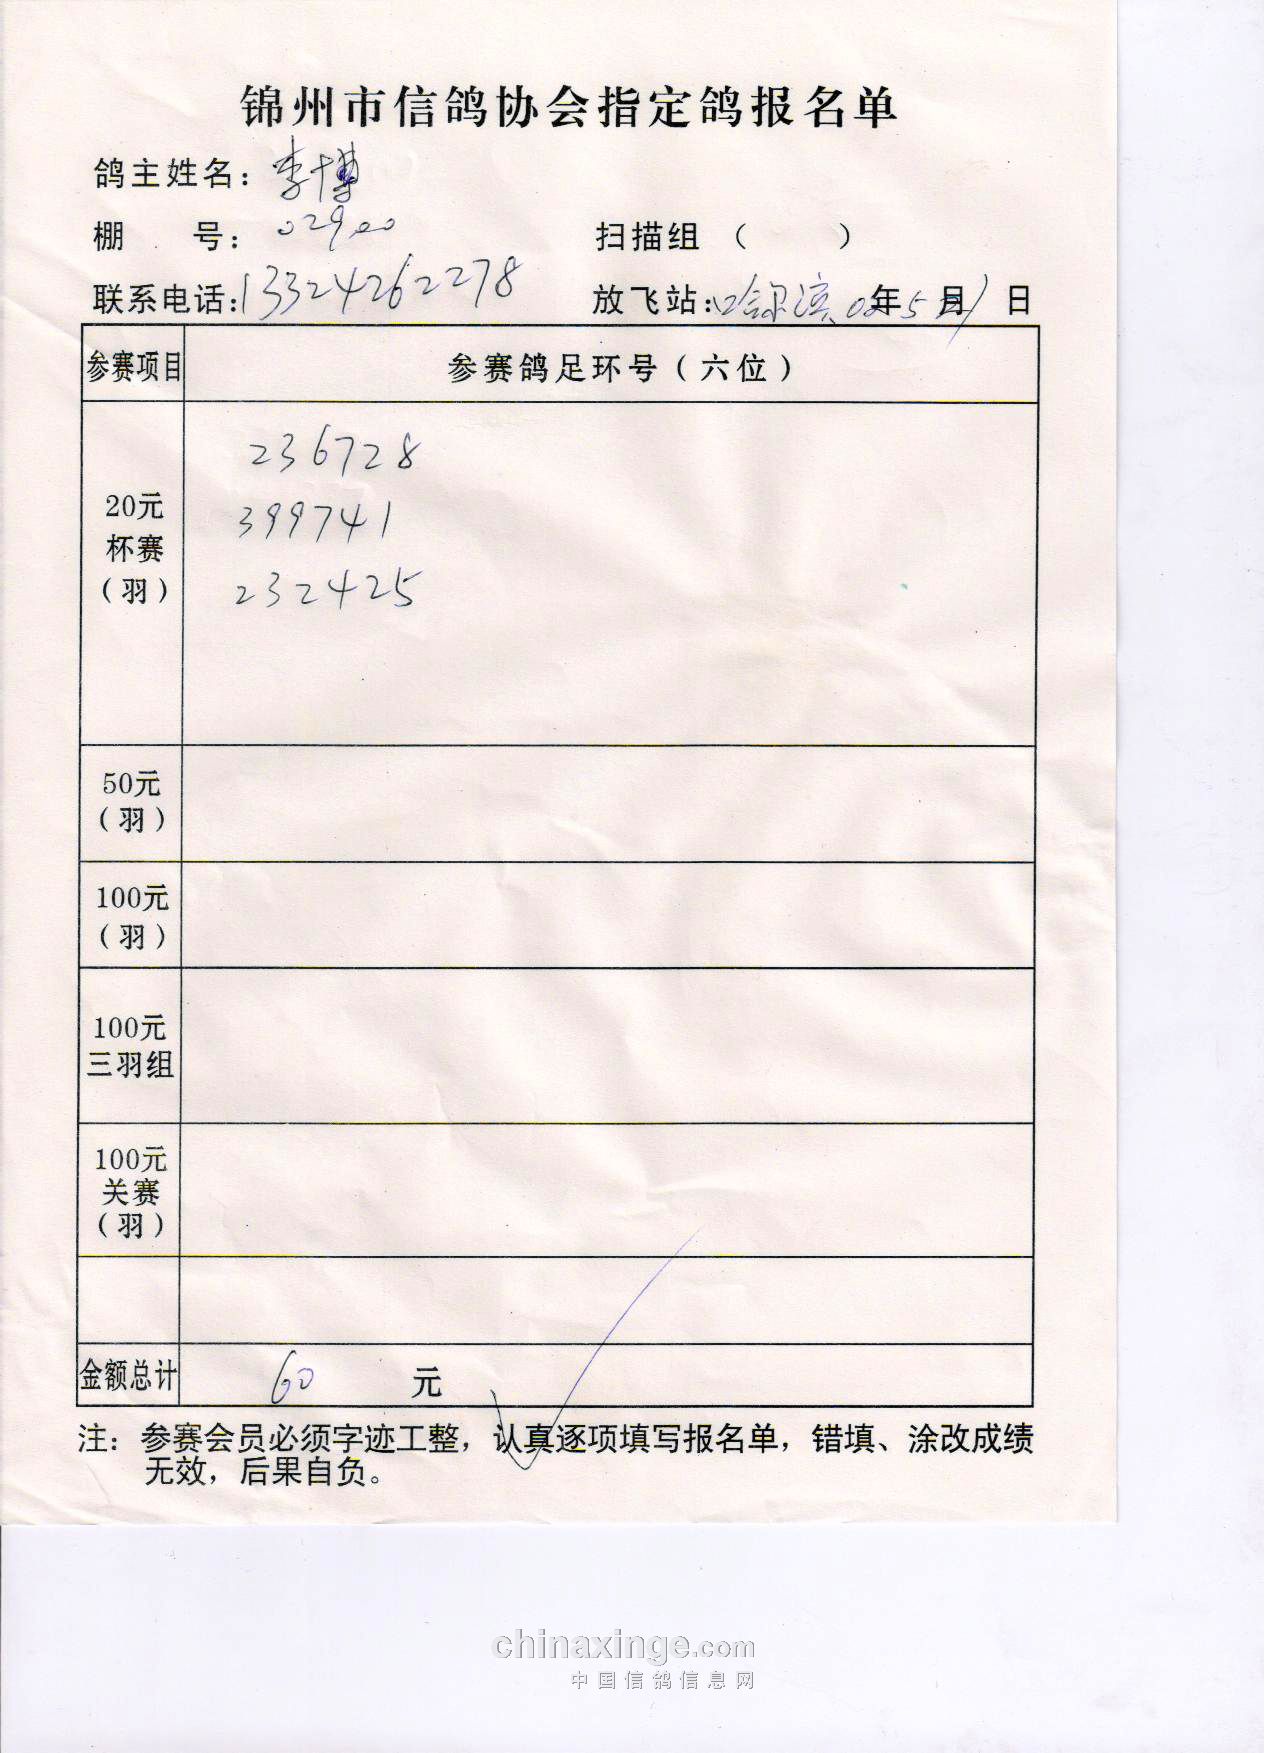 锦州市信鸽协会指定鸽报名单
鸽主姓名：李博
棚 号：02900 扫描组（ ）
联系电话：13324262278 放飞站：哈尔滨 年 5 月 1 日
参赛项目 参赛鸽足环号（六位）
20元
杯赛
（羽）
236728
399741
232425
50元
（羽）
100元
（羽）
100元
三羽组
100元
关赛
（羽）
金额总计 60 元
注：参赛会员必须字迹工整，认真逐项填写报名单，错填、涂改成绩
无效，后果自负。
chinaxinge.com
中国信鸽信息网